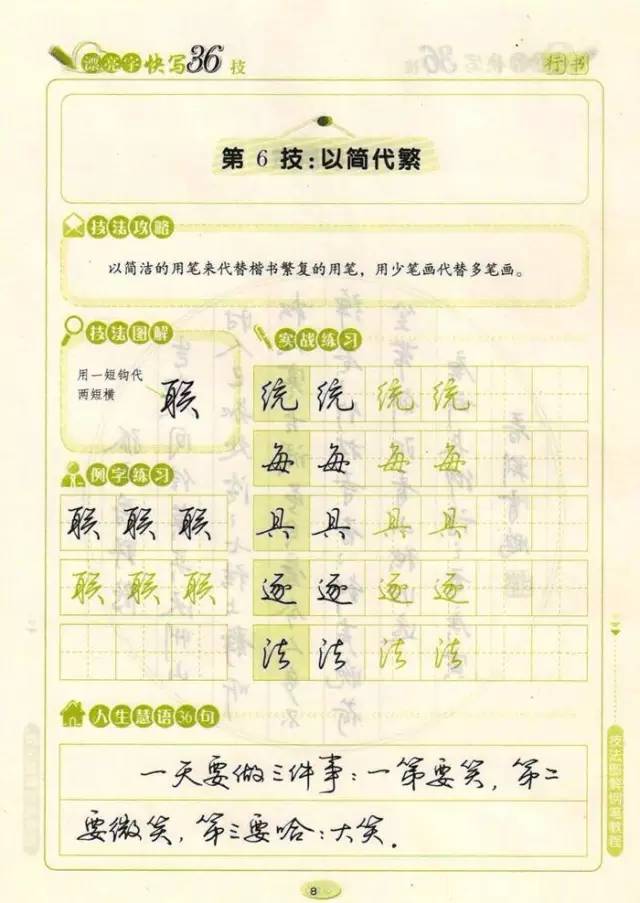 漂亮字快写36技
行书
第6技:以简代繁
技法攻略
以简洁的用笔来代替楷书繁复的用笔，用少笔画代替多笔画。
技法图解
用一短钩代
两短横
联
实战练习
统 统 统 统
每 每 每 每
具 具 具 具
逐 逐 逐 逐
法 法 法 法
例字练习
联 联 联
联 联 联
人生慧语36句
一天要做三件事:一第要笑，第二
要微笑，第三要哈:大笑．
技法图解例笔教程
8